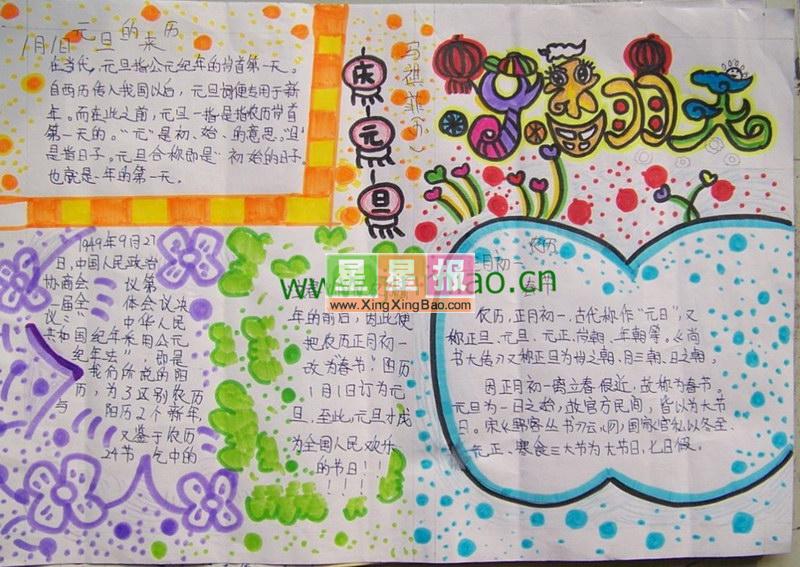 元旦的来历
1月1日
在当代，元旦指公元纪年的岁首第一天。
自西历传入我国以后，元旦一词便专用于新
年。而在此之前，元旦一指是指农历岁首
第一天的。"元"是初、始的意思，"旦"
是指日子。元旦合称即是"初始的日子"
也就是一年的第一天。
庆
元
旦
1949年9月27
日，中国人民政治
协商会 议第
一届全 体会议决
议：" 中华人民
共和国纪年采用公元
纪年法"，即是
我们所说的阳
历，为了区别农历
与 阳历2个新年，
又鉴于农历
24节 气中的
春
年的前后，因此便
把农历正月初一
改为春节，阳历
1月1日订为元
旦，至此，元旦才成
为全国人民欢乐
的节日！！
！！！
农历
正月初一
春节
农历，正月初一，古代称作"元日"，又
称正旦、元旦、元正、岁朝、年朝等。《尚
书大传》又称正旦为岁之朝、月之朝、日之朝，
因正月初一离立春很近，故称为春节。
元旦为一日之始，故官方民间，皆以为大节
日。宋《野客丛书》云：国家官私以冬至、
元正、寒食三大节为大节日，七日假。
星星报
www.XingXingBao.com
bao.cn